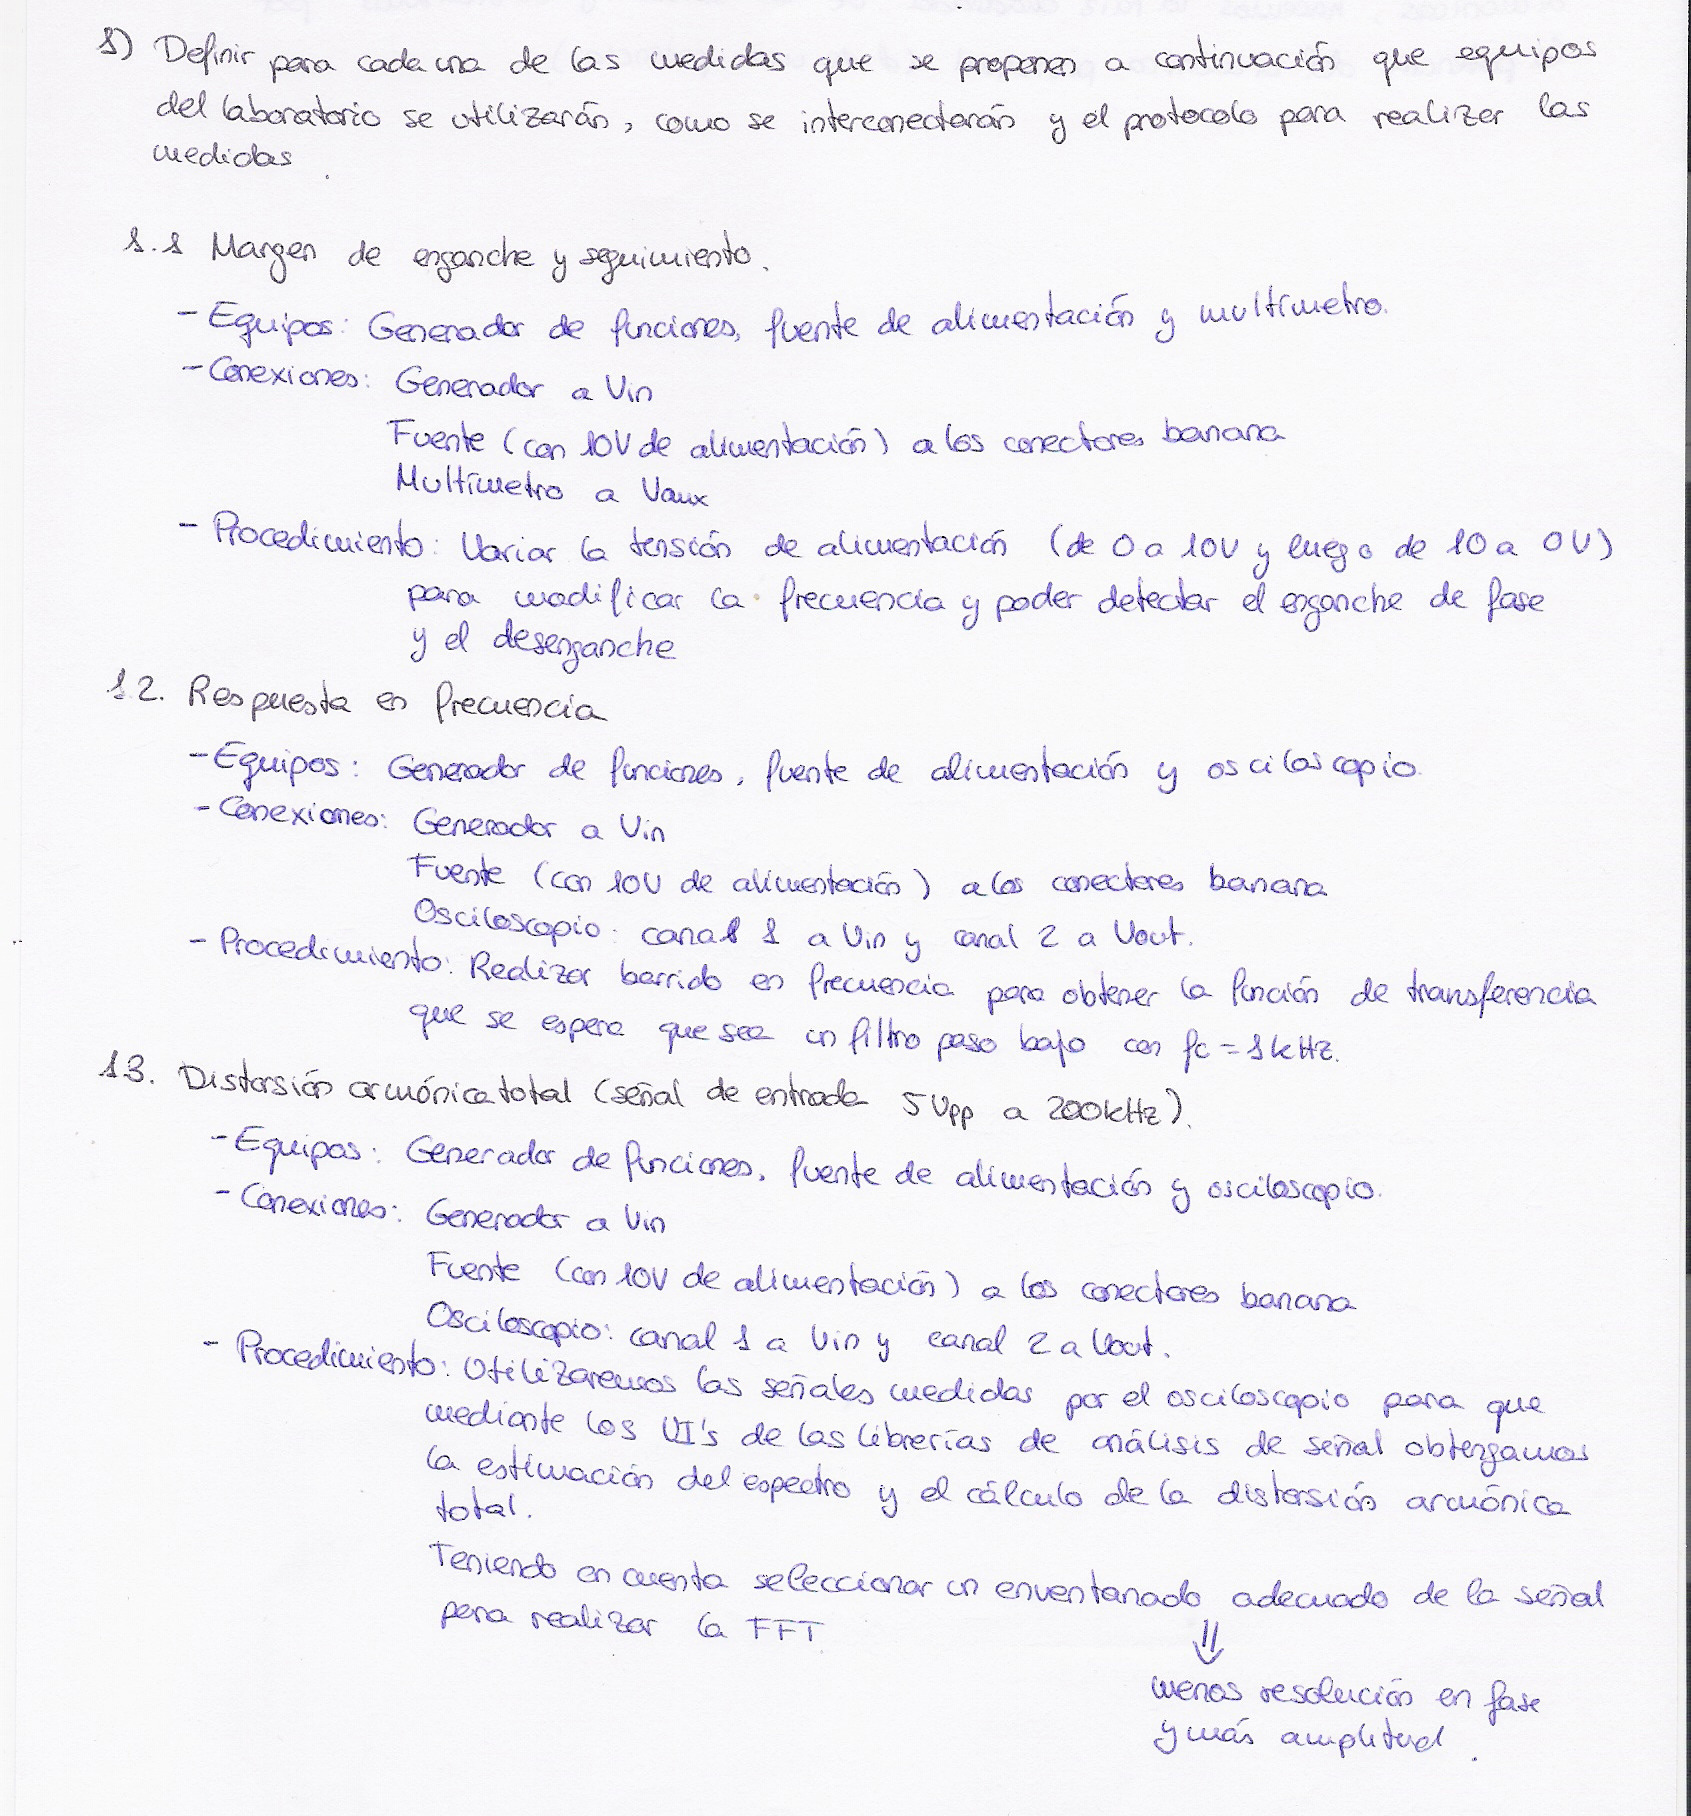 1) Definir para cada una de las medidas que se proponen a continuación que equipos
del laboratorio se utilizarán, como se interconectarán y el protocolo para realizar las
medidas.
1.1 Margen de enganche y seguimiento.
- Equipos: Generador de funciones, fuente de alimentación y multímetro.
- Conexiones: Generador a Vin
Fuente (con 10V de alimentación) a los conectores banana
Multímetro a Vaux
- Procedimiento: Variar la tensión de alimentación (de 0 a 10V y luego de 10 a 0V)
para modificar la frecuencia y poder detectar el enganche de fase
y el desenganche
1.2. Respuesta en frecuencia
- Equipos: Generador de funciones, fuente de alimentación y osciloscopio.
- Conexiones: Generador a Vin
Fuente (con 10V de alimentación) a los conectores banana
Osciloscopio: canal 1 a Vin y canal 2 a Vout.
- Procedimiento: Realizar barrido en frecuencia para obtener la función de transferencia
que se espera que sea un filtro paso bajo con fc = 1kHz.
1.3. Distorsión armónica total (señal de entrada 5Vpp a 200kHz).
- Equipos: Generador de funciones, fuente de alimentación y osciloscopio.
- Conexiones: Generador a Vin
Fuente (con 10V de alimentación) a los conectores banana
Osciloscopio: canal 1 a Vin y canal 2 a Vout.
- Procedimiento: Utilizaremos las señales medidas por el osciloscopio para que
mediante los VI's de las librerías de análisis de señal obtengamos
la estimación del espectro y el cálculo de la distorsión armónica
total.
Teniendo en cuenta seleccionar un enventanado adecuado de la señal
para realizar la FFT
⇓
menos resolución en fase
y más amplitud.